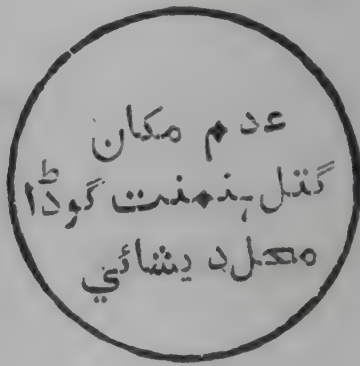 عدم مکان
گتل ہنمنت گوڈا
محل دیشائي